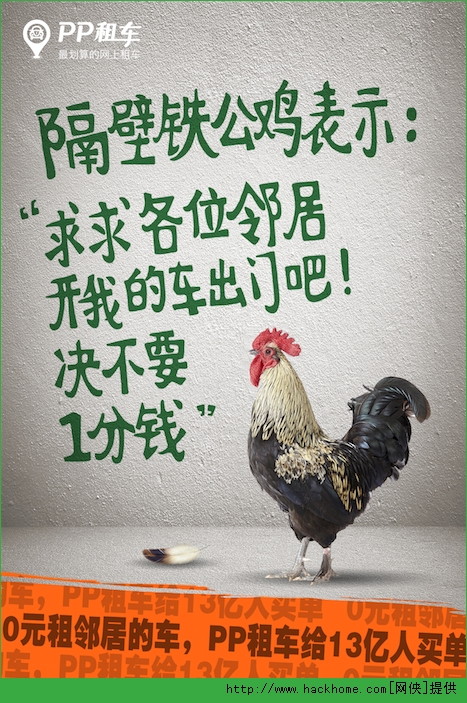 PP租车
最划算的网上租车
隔壁铁公鸡表示：
“求求各位邻居
开我的车出门吧！
决不要
1分钱”
车，PP租车给13亿人买单 0元租邻居的
0元租邻居的车，PP租车给13亿人买单
租邻居的车，PP租车给13亿人买单 0元租
http://www.hackhome.com[网侠]提供